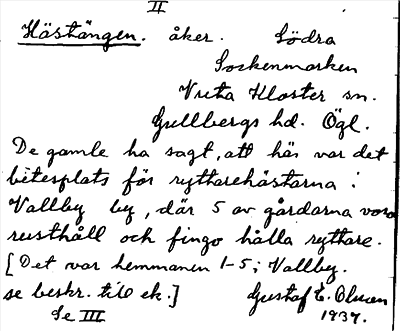 II
Hästängen. åker. Södra
Sockenmarken
Vreta Kloster sn.
Gullbergs hd. Ögl.
De gamle ha sagt, att här var det
betesplats för ryttarehästarna i
Vallby by, där 5 av gårdarna voro
rusthåll och fingo hålla ryttare.
[Det var hemmanen 1-5 i Vallby.
se beskr. till ek.] Gustaf E. Olsson
Se III 1937.